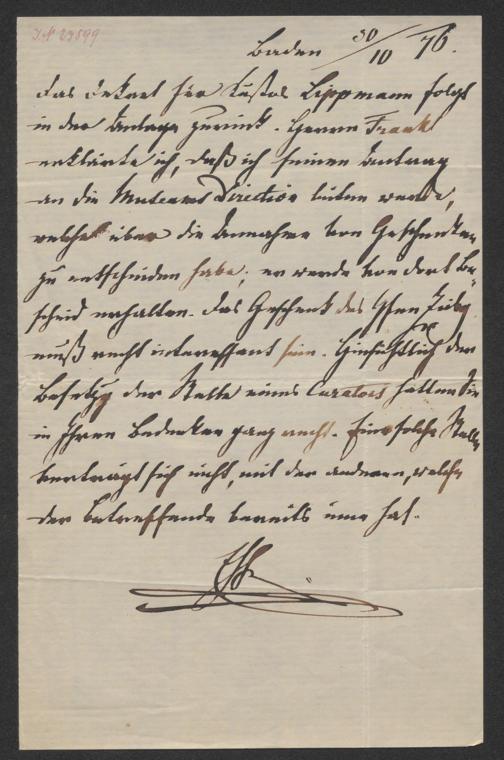 J.N 29899
Baden 30/10 76.
das Dekret für Custos Lippmann folgt
in der Anlage zurück. Herrn Frank
erklärte ich, daß ich seinen Antrag
an die Museums Direction leiten werde,
welche über die Annahme von Geschenken
zu entscheiden habe; er werde von dort Be-
scheid erhalten. Das Geschenk des Gfen Zichy
muß recht interessant sein. Hinsichtlich der
Besetzg der Stelle eines Curators hatten Sie
in Ihren Bedenken ganz recht. Eine solche Stelle
verträgt sich nicht, mit der anderen, welche
der betreffende bereits inne hat.